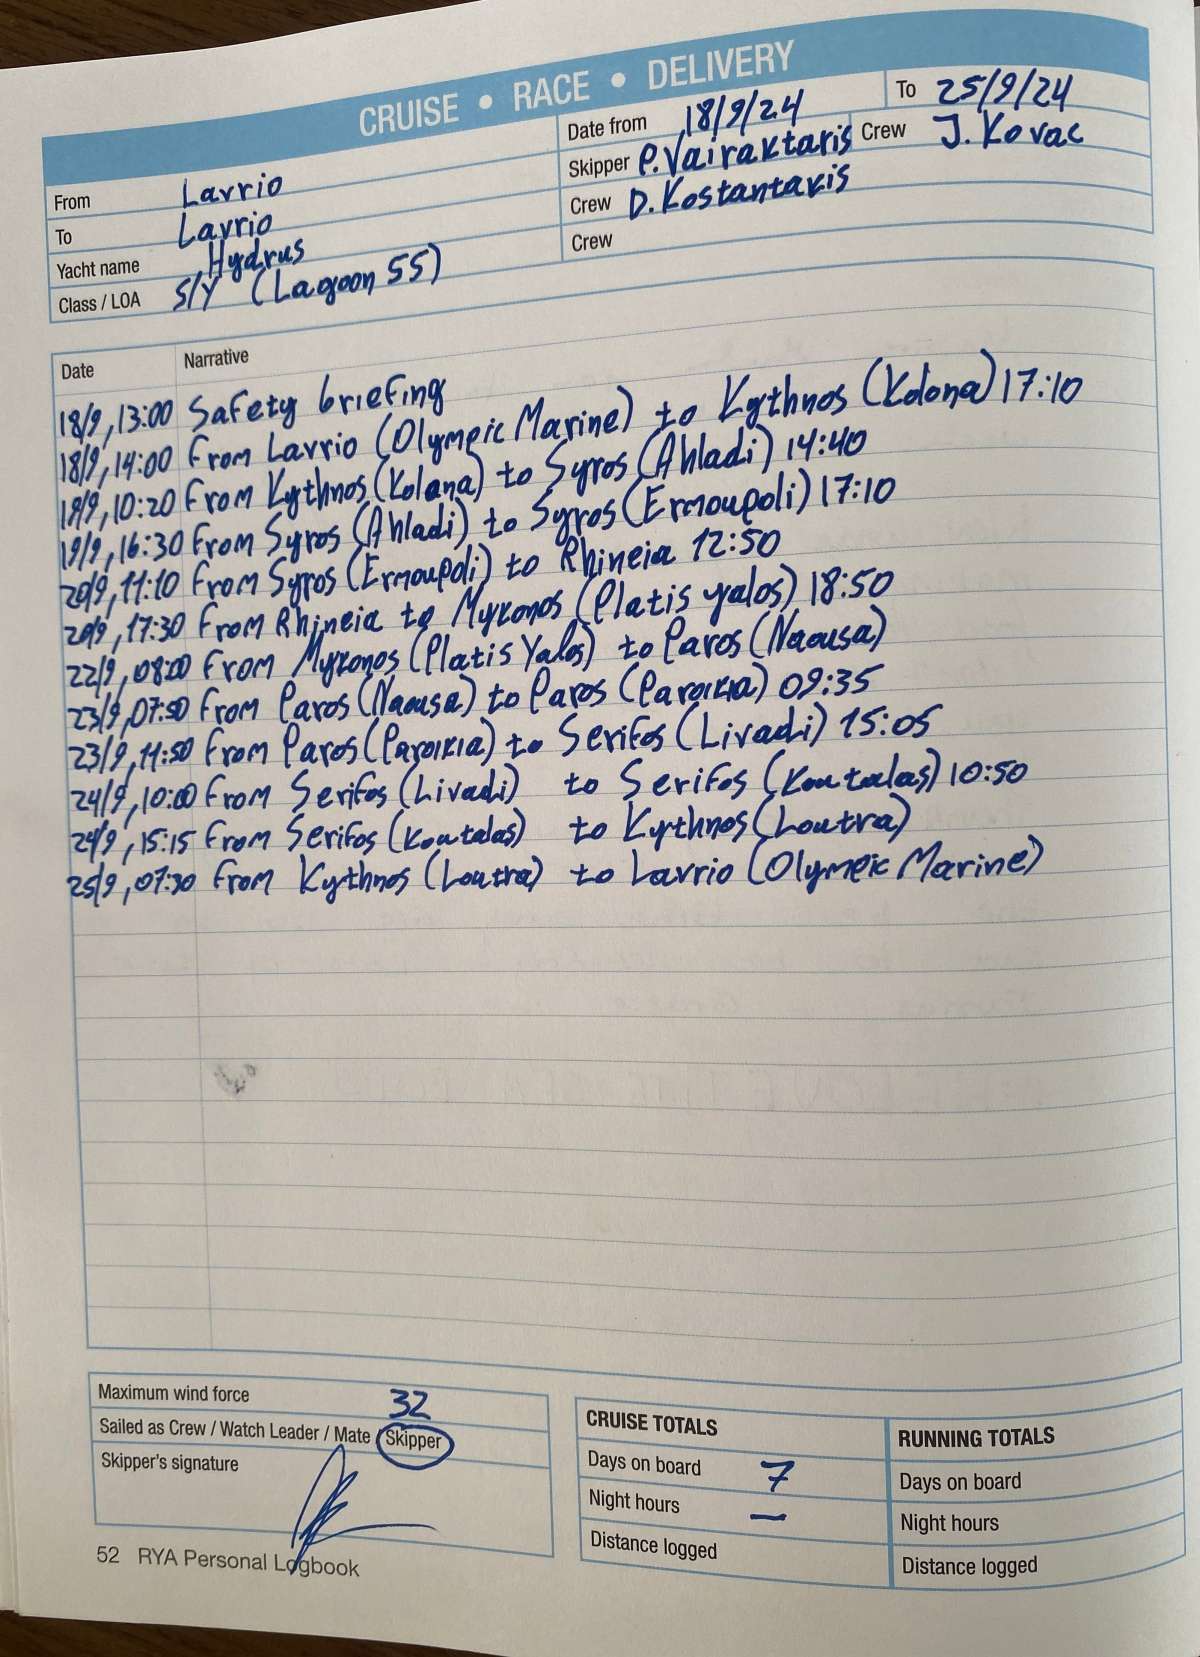 CRUISE • RACE • DELIVERY
From Lavrio
To Lavrio
Yacht name Hydrus
Class / LOA S/Y (Lagoon 55)
Date from 18/9/24 To 25/9/24
Skipper P. Vairaktaris Crew J. Kovac
Crew D. Kostantakis
Crew
Date Narrative
18/9, 13:00 Safety briefing
18/9, 14:00 From Lavrio (Olympic Marine) to Kythnos (Kolona) 17:10
19/9, 10:20 From Kythnos (Kolona) to Syros (Ahladi) 14:40
19/9, 16:30 From Syros (Ahladi) to Syros (Ermoupoli) 17:10
20/9, 11:10 From Syros (Ermoupoli) to Rhineia 12:50
20/9, 17:30 From Rhineia to Mykonos (Platis yalos) 18:50
22/9, 08:00 From Mykonos (Platis Yalos) to Paros (Naousa)
23/9, 07:50 From Paros (Naousa) to Paros (Paroikia) 09:35
23/9, 11:50 From Paros (Paroikia) to Serifos (Livadi) 15:05
24/9, 10:00 From Serifos (Livadi) to Serifos (Koutalas) 10:50
24/9, 15:15 From Serifos (Koutalas) to Kythnos (Loutra)
25/9, 07:30 From Kythnos (Loutra) to Lavrio (Olympic Marine)
Maximum wind force 32
Sailed as Crew / Watch Leader / Mate / Skipper
Skipper's signature
52 RYA Personal Logbook
CRUISE TOTALS
Days on board 7
Night hours —
Distance logged
RUNNING TOTALS
Days on board
Night hours
Distance logged